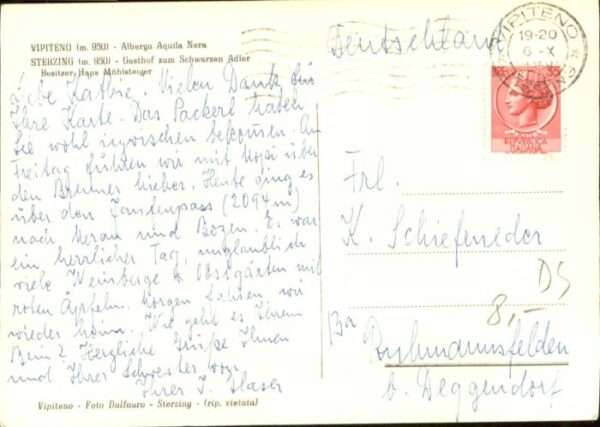 VIPITENO (m. 950) - Albergo Aquila Nera
STERZING (m. 950) - Gasthof zum Schwarzen Adler
Besitzer: Hans Mühlsteiger
Liebe Käthe. Vielen Dank für
Ihre Karte. Das Packerl haben
Sie wohl inzwischen bekommen. Am
Freitag fuhren wir mit über
den Brenner hieher. Heute ging es
über den Jaufenpass (2094 m)
nach Meran und Bozen. Es war
ein herrlicher Tag, unglaublich
viele Weinberge & Obstgärten mit
roten Äpfeln. Morgen fahren wir
wieder heim. Wie geht es Ihrem
Bein? Herzliche Grüße Ihnen
und Ihrer Schwester von
Ihrer J. Glaser
Vipiteno - Foto Dalfauro - Sterzing - (rip. vietata)
Deutschland
VIPITENO
19-20
6-X
35
REPUBBLICA
ITALIANA
Frl.
K. Schiefeneder
DS
8,-
Ruhmannsfelden
b. Deggendorf